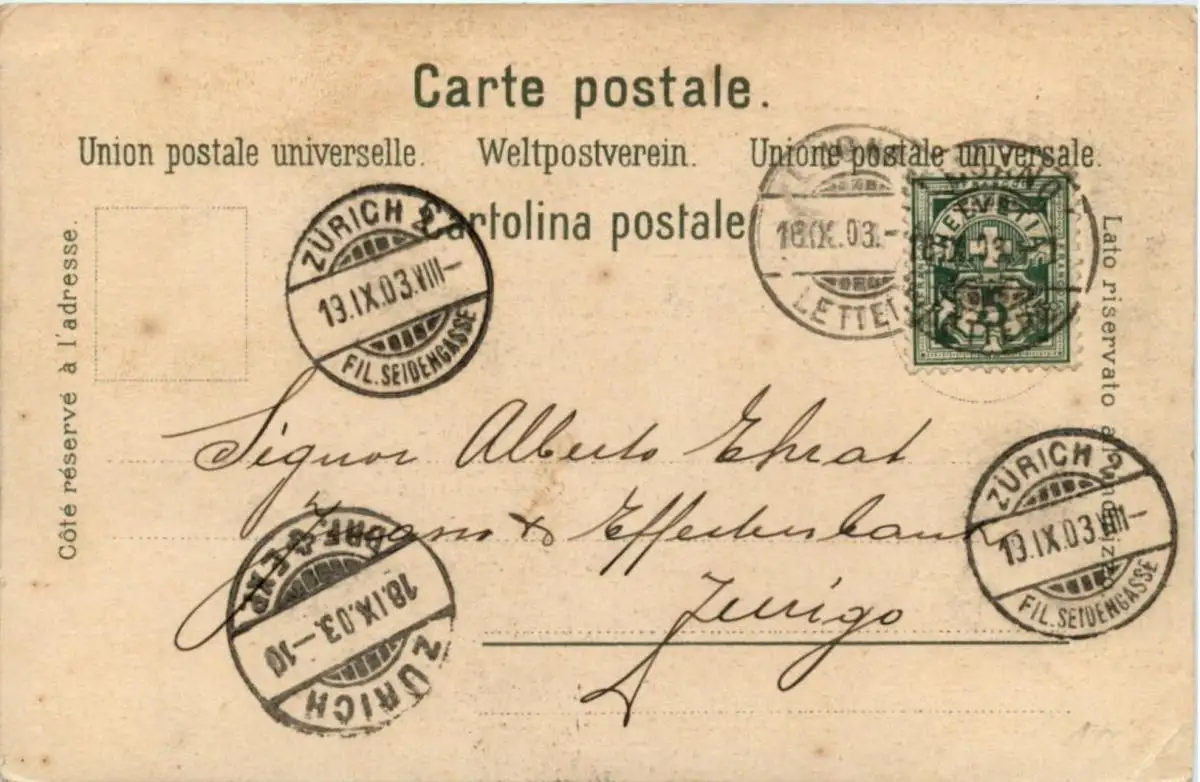 Carte postale.
Union postale universelle. Weltpostverein. Unione postale universale.
Cartolina postale
Côté réservé à l'adresse.
Lato riservato
ZÜRICH 2
19.IX.03.VIII–
FIL. SEIDENGASSE
18.IX.03.–
LETTE
HELVETIA
5
Signor Alberto Ehrat
& Effectenbank
Zurigo
ZÜRICH 2
19.IX.03.VIII–
FIL. SEIDENGASSE
18.IX.03.–10
ZÜRICH